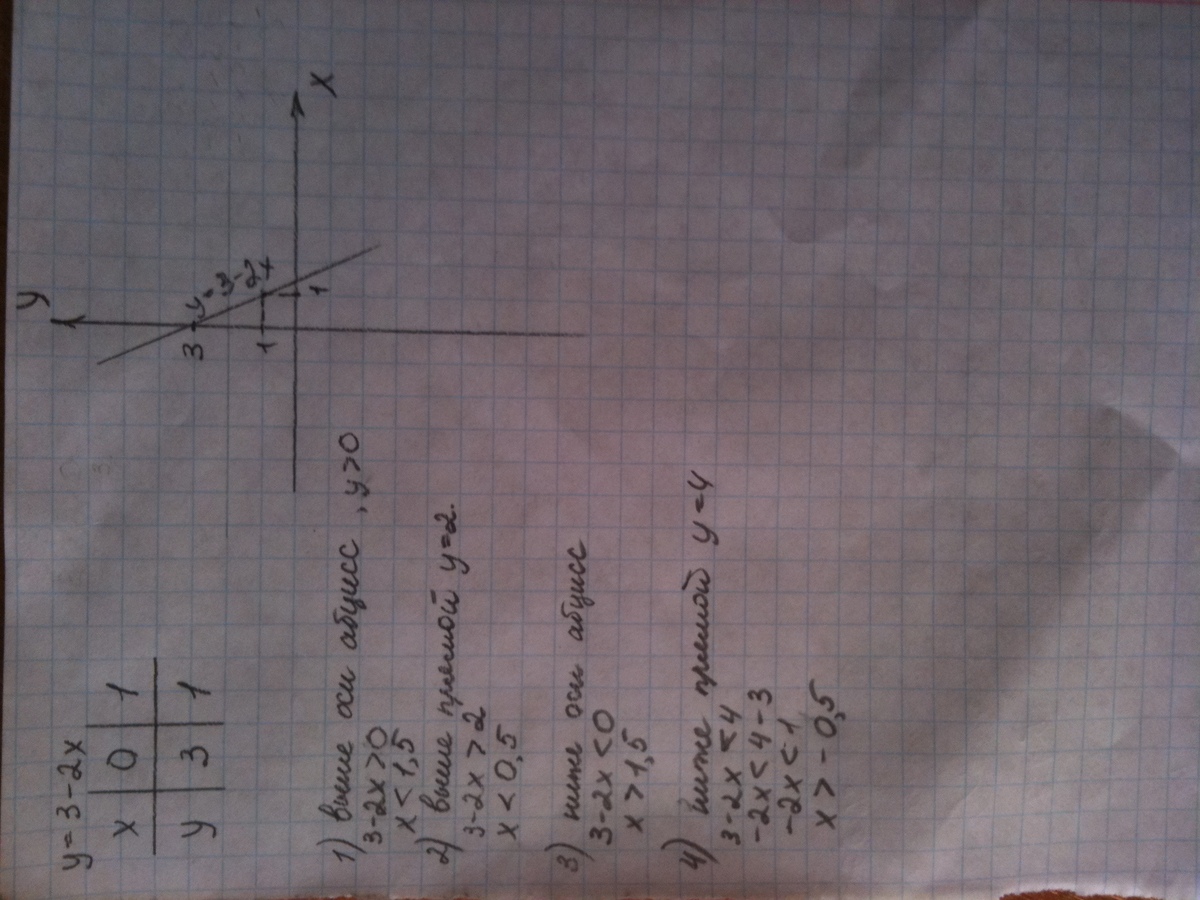 y = 3 - 2x
x 0 1
y 3 1
y
3
y = 3 - 2x
1
1
x
1) выше оси абцисс, y > 0
3 - 2x > 0
x < 1,5
2) выше прямой y = 2.
3 - 2x > 2
x < 0,5
3) ниже оси абцисс
3 - 2x < 0
x > 1,5
4) ниже прямой y = 4
3 - 2x < 4
-2x < 4 - 3
-2x < 1
x > -0,5